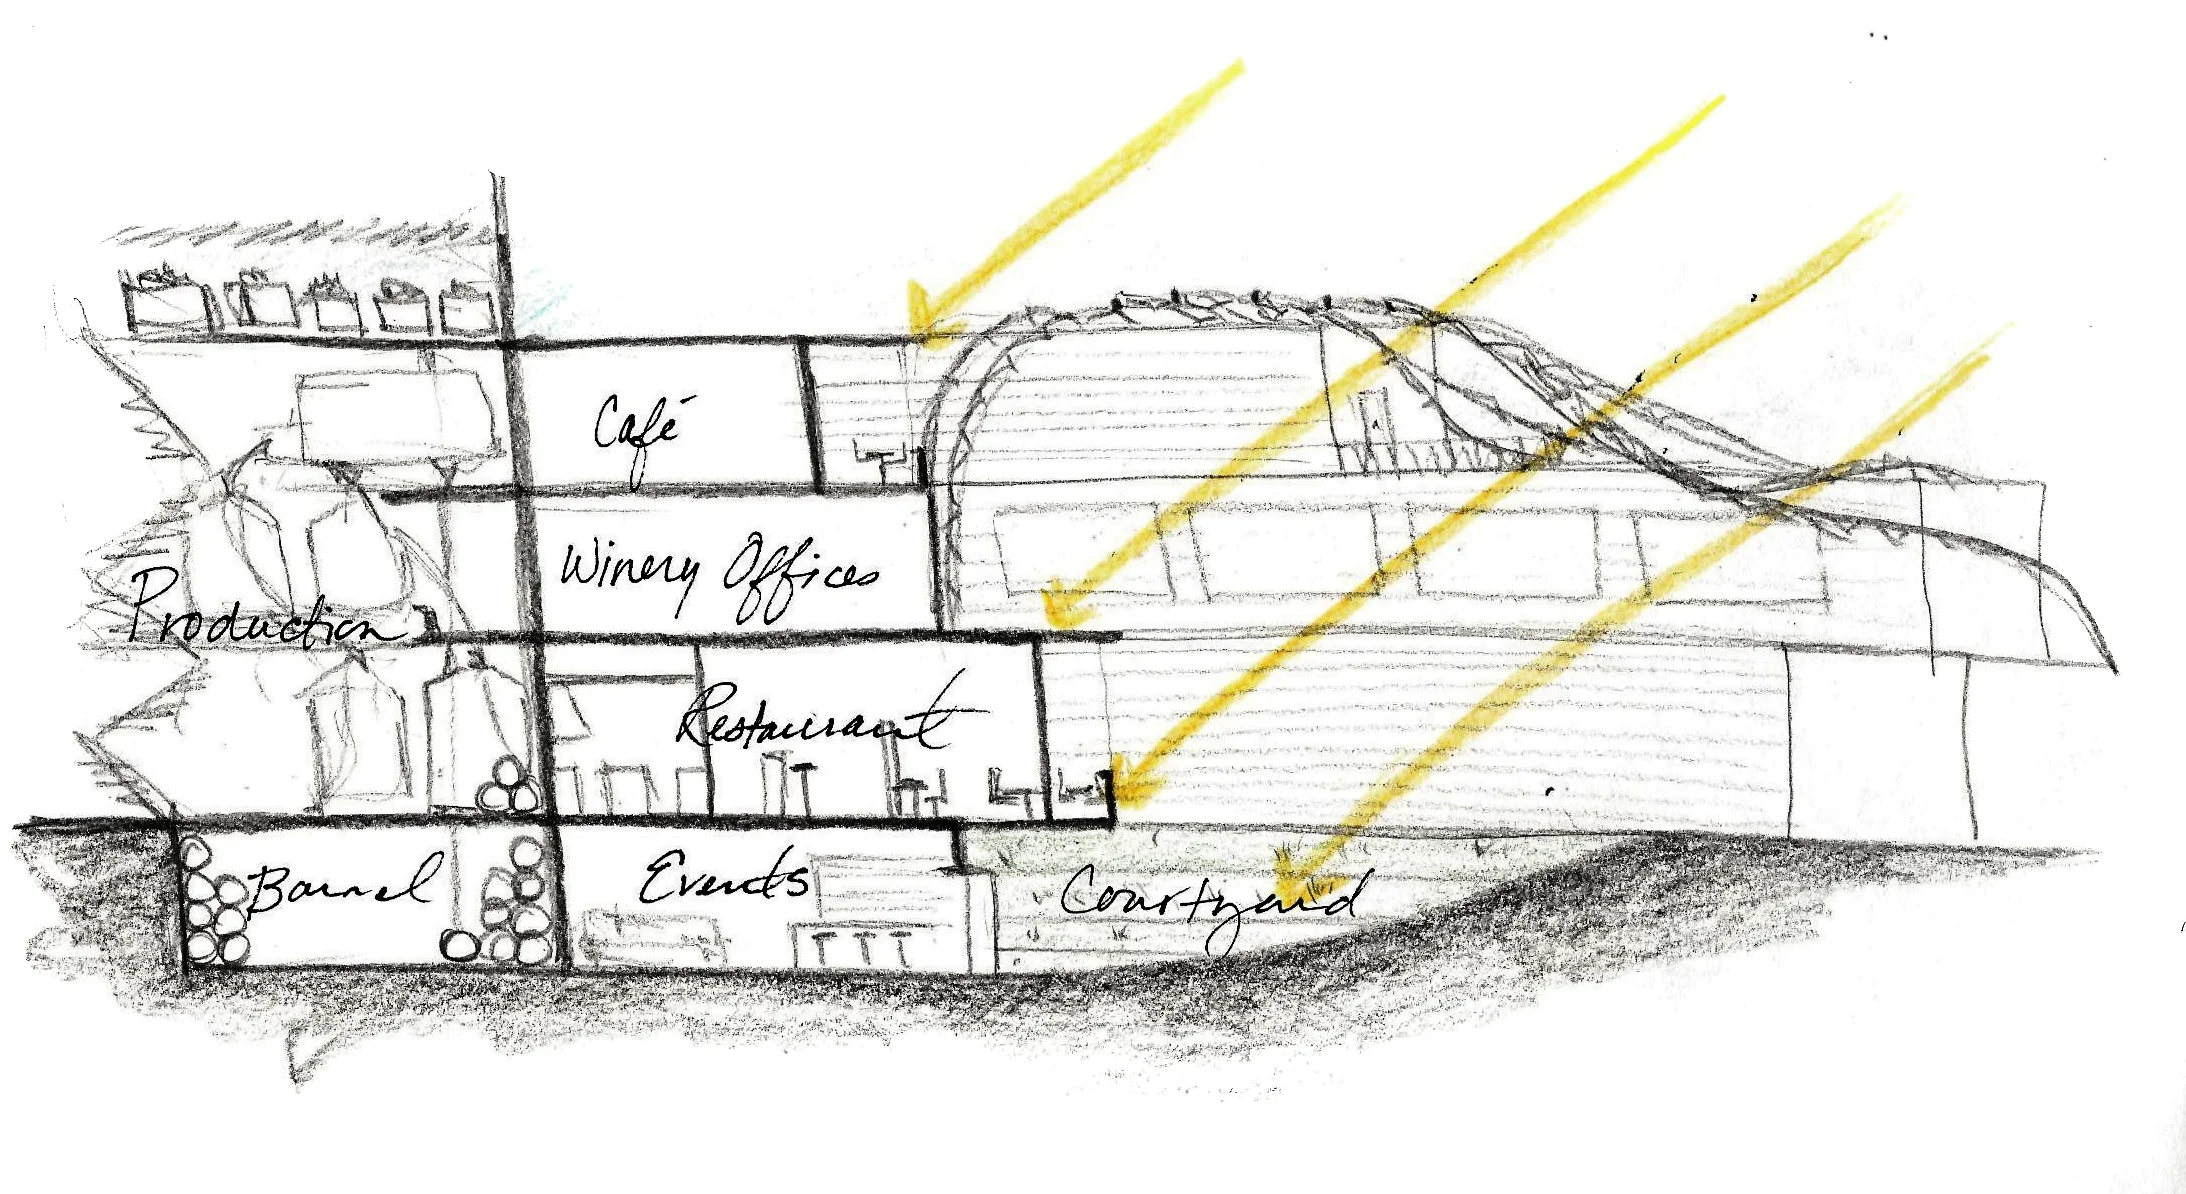 Café
Winery Offices
Production
Restaurant
Barrel
Events
Courtyard